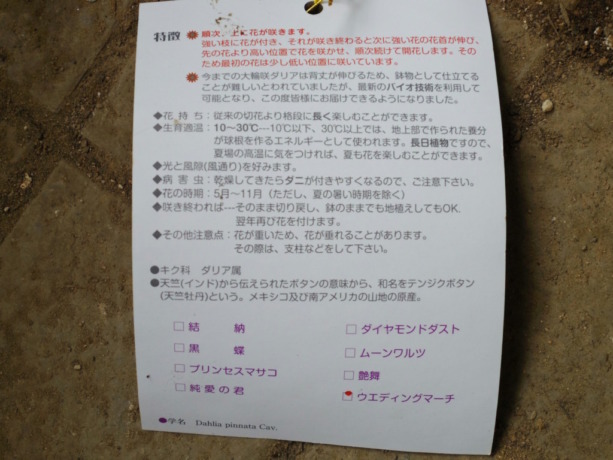 特徴
順次、上に花が咲きます。
強い枝に花が付き、それが咲き終わると次に強い花の花首が伸び、
先の花より高い位置で花を咲かせ、順次続けて開花します。その
ため最初の花は少し低い位置に咲いています。
今までの大輪咲ダリアは背丈が伸びるため、鉢物として仕立てる
ことが難しいとわれていましたが、最新のバイオ技術を利用して
可能となり、この度皆様にお届けできるようになりました。
◆花持ち:従来の切花より格段に長く楽しむことができます。
◆生育適温:10〜30℃---10℃以下、30℃以上では、地上部で作られた養分
が球根を作るエネルギーとして使われます。長日植物ですので、
夏場の高温に気をつければ、夏も花を楽しむことができます。
◆光と風隙(風通り)を好みます。
◆病害虫:乾燥してきたらダニが付きやすくなるので、ご注意下さい。
◆花の時期:5月〜11月(ただし、夏の暑い時期を除く)
◆咲き終われば---そのまま切り戻し、鉢のままでも地植えしてもOK.
翌年再び花を付けます。
◆その他注意点:花が重いため、花が垂れることがあります。
その際は、支柱などをして下さい。
●キク科 ダリア属
●天竺(インド)から伝えられたボタンの意味から、和名をテンジクボタン
(天竺牡丹)という。メキシコ及び南アメリカの山地の原産。
□結納
□黒蝶
□プリンセスマサコ
□純愛の君
□ダイヤモンドダスト
□ムーンワルツ
□艶舞
□ウエディングマーチ
●学名 Dahlia pinnata Cav.